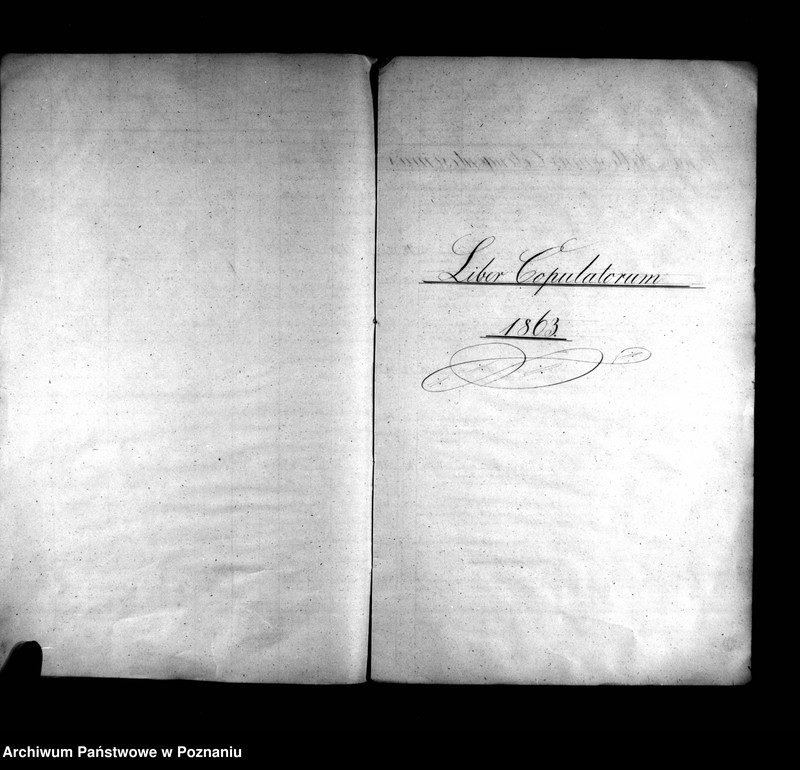 Liber Copulatorum
1863.
Archiwum Państwowe w Poznaniu